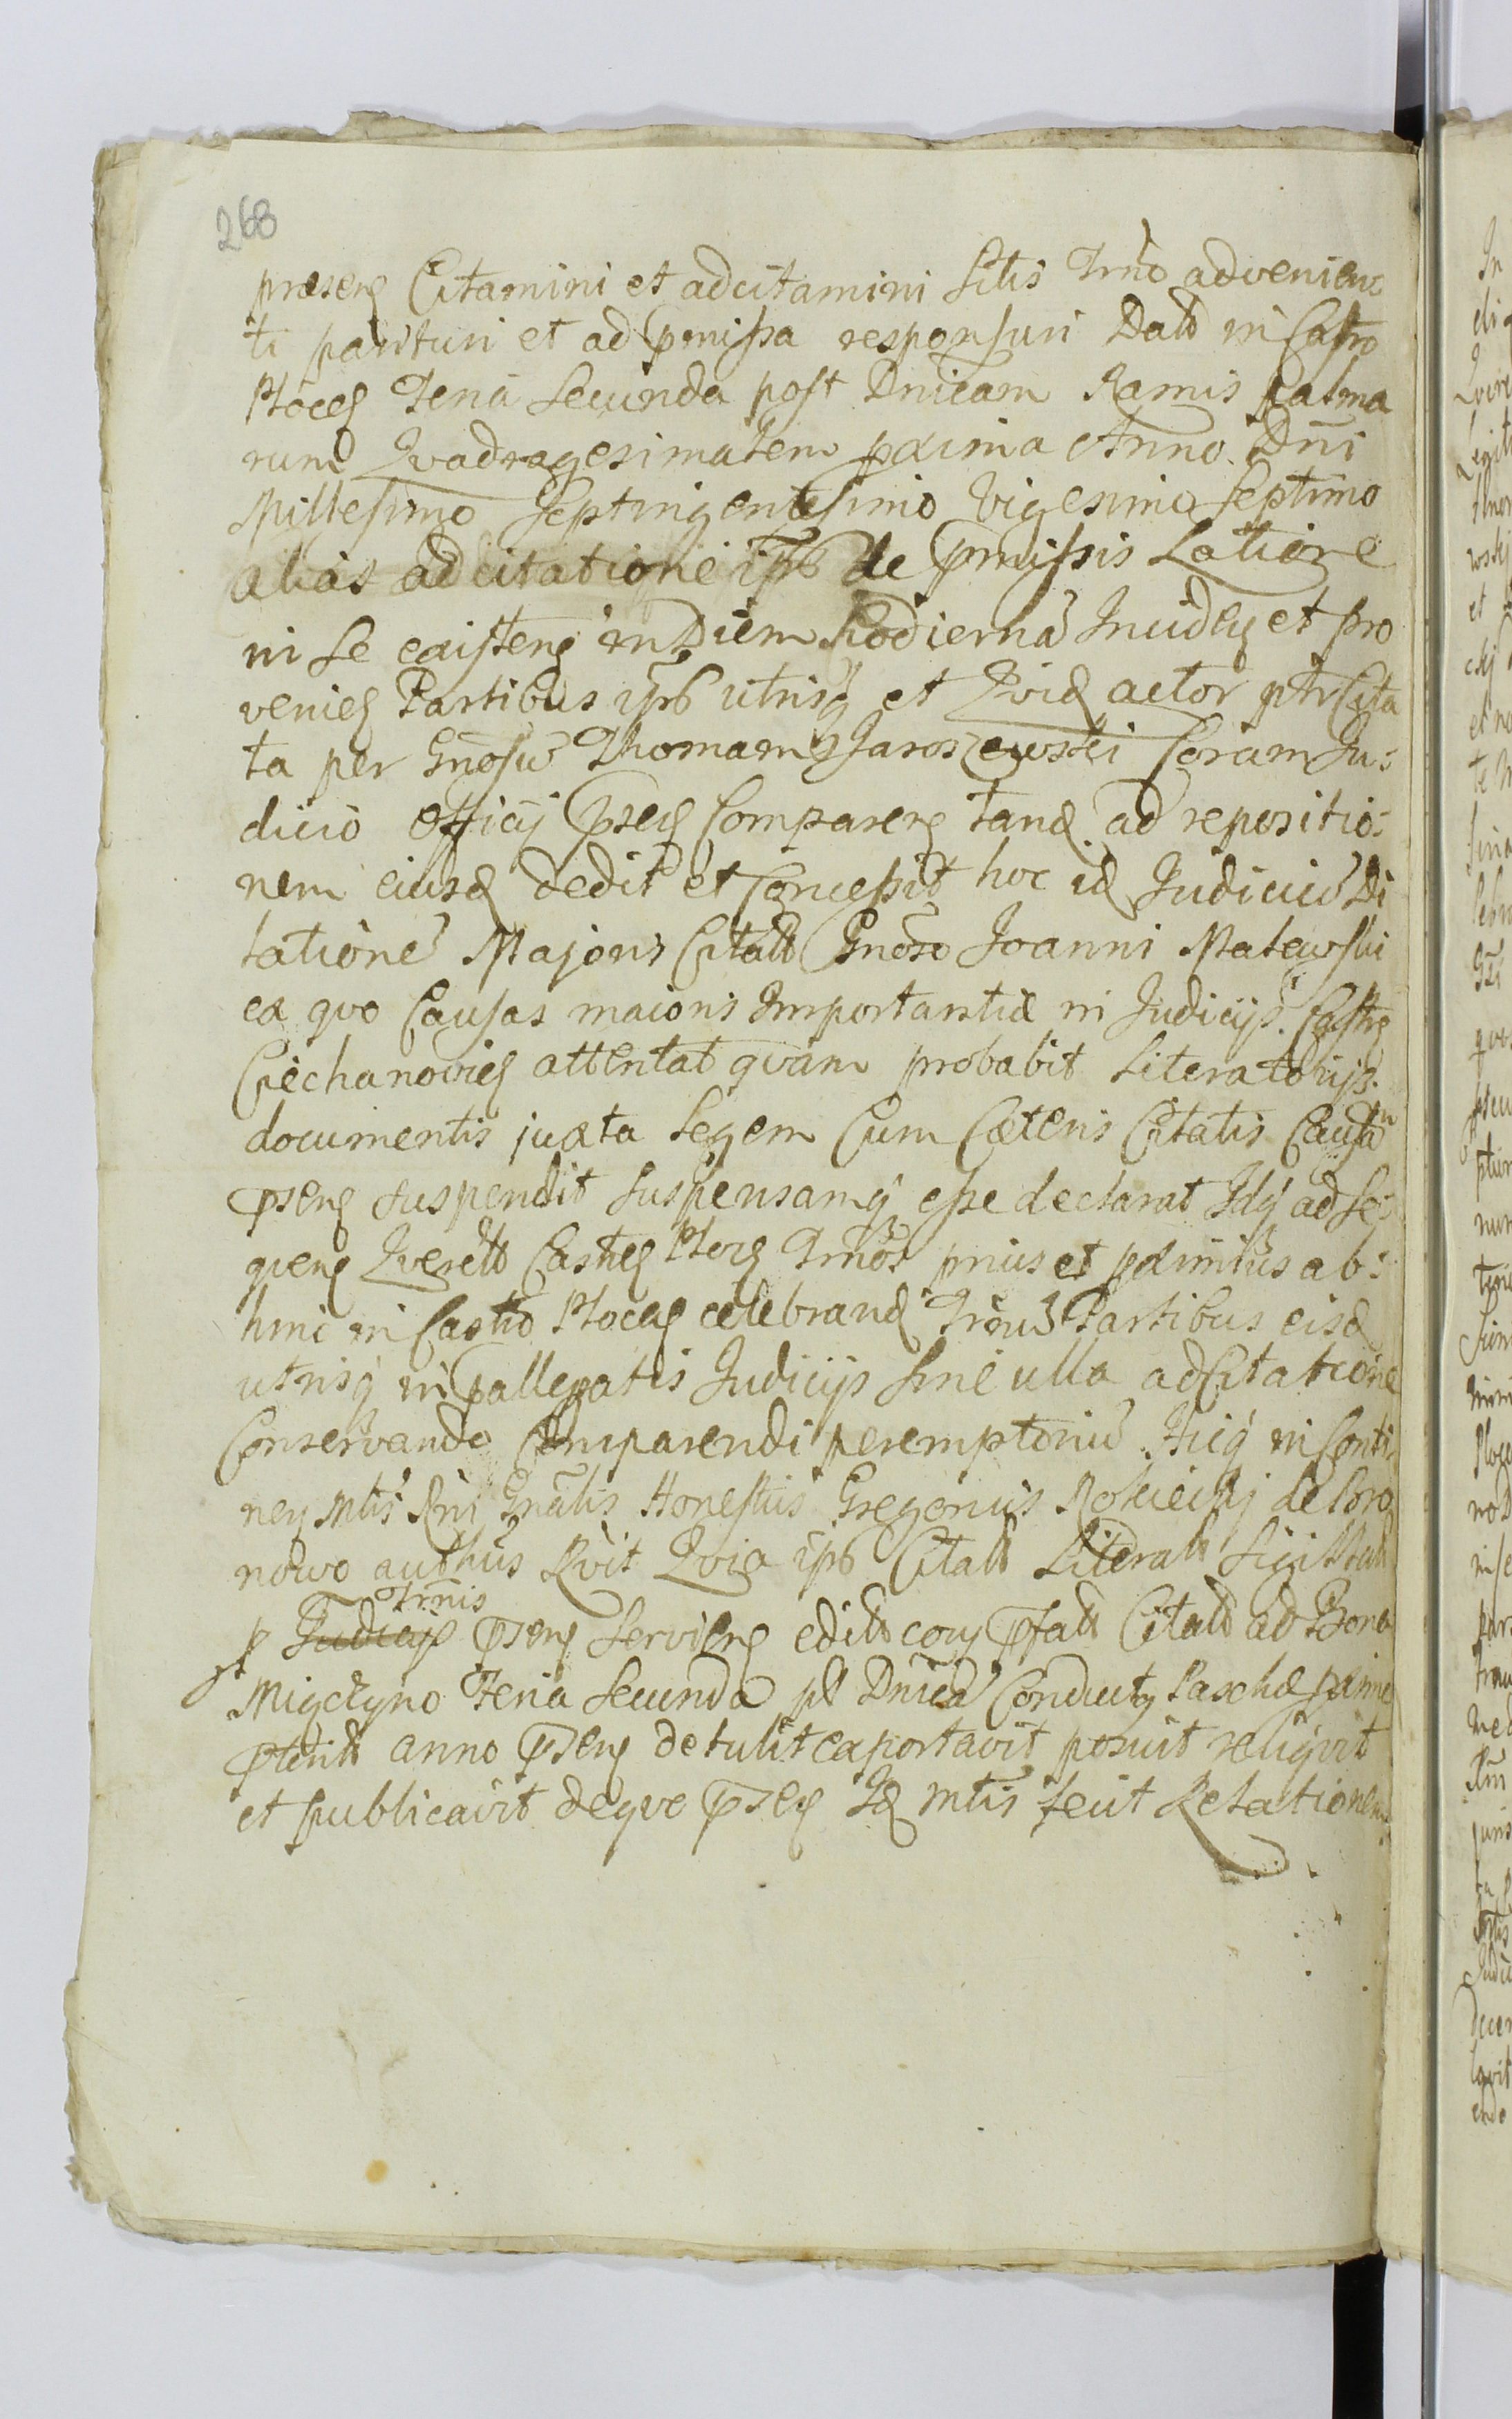 268
præsens Citamini et adcitamini sitis Trno advenien
ti parituri et ad pmissa responsuri Datt in Castro
Plocen Feria Secunda post Dnicam Ramis Palma
rum Qvadragesimalem pxima Anno Dni
Millesimo Septingentesimo Vigesimo Septimo
alias adcitatione ipso de pmissis Latiore
in se existens in Diem hodiernã Inciden et pro
venien Partibus ips utrisq et Qvid actor ptr Cita
ta per Gnosũ Thomam Jaroszewski Coram Ju:
dicio Officij psen Comparens tand ad repositio:
nem eiusd dedit et Concessit hoc id Judiciũ Di
latione Majoris Citatt Gnoso Joanni Malewski
ex qvo Causas maioris Importantiæ in Judicijs Castr
Ciechanovien attentat qvam probabit Literatorijs
documentis juxta Legem Cum Cæteris Citatis Causã
psens suspendit suspensamq esse declarat Idq ad se:
qvens Qverett Castren Plocen Trnos prius et pximius ab:
hinc in Castro Plocen celebrand Trnũ Partibus eisd
utrisq in pallegatis Judicijs sine ulla adcitatione
Conservando Comparendi peremptoriũ Hicq in Conti
nen Mtis Rni Gnalis Honestus Gregorius de Coro
nowo authus Rvit Qvia ips Citatt Literatt Sigillatt
Trnis
p Judicijs psens Serviens editt cory pfatt Citatt ad Bona
Migczyno Feria Secunda pt Dnica Conductg Paschæ pxime
pterit anno psens detulit exportavit posuit reliqvit
et publicavit deqve psen Id mtis fecit Relationem